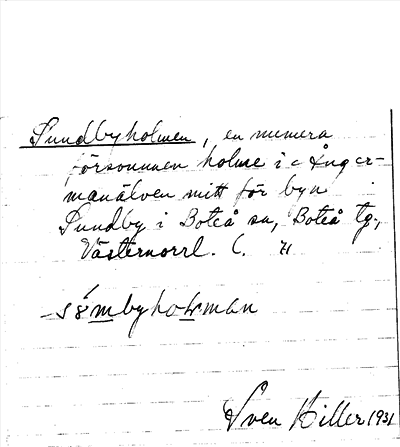 Sundbyholmen, en numera
försvunnen holme i Ånger-
manälven mitt för byn
Sundby i Boteå sn, Boteå tg,
Västernorrl. l.
Sven Hiller 1931